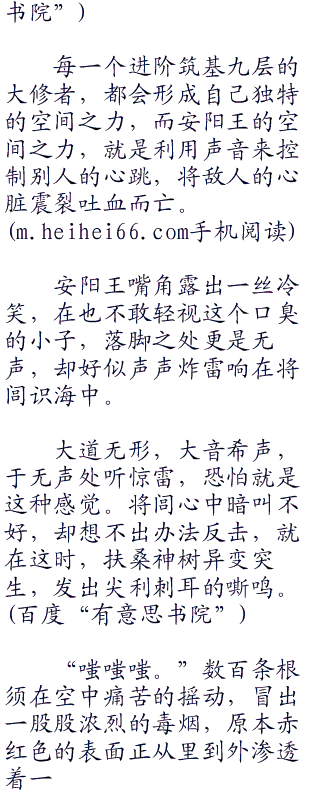 书院”)
每一个进阶筑基九层的
大修者，都会形成自己独特
的空间之力，而安阳王的空
间之力，就是利用声音来控
制别人的心跳，将敌人的心
脏震裂吐血而亡。
(m.heihei66.com手机阅读)
安阳王嘴角露出一丝冷
笑，在也不敢轻视这个口臭
的小子，落脚之处更是无
声，却好似声声炸雷响在将
闾识海中。
大道无形，大音希声，
于无声处听惊雷，恐怕就是
这种感觉。将闾心中暗叫不
好，却想不出办法反击，就
在这时，扶桑神树异变突
生，发出尖利刺耳的嘶鸣。
(百度“有意思书院”)
“嗤嗤嗤。”数百条根
须在空中痛苦的摇动，冒出
一股股浓烈的毒烟，原本赤
红色的表面正从里到外渗透
着一